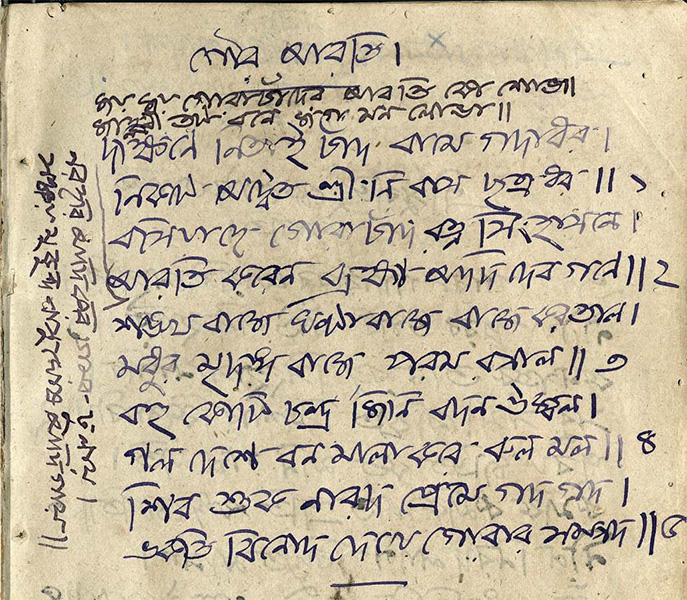 গৌর আরতি।
জয় জয় গোরাচাঁদের আরতি কো শোভা।
জাহ্নবী তট বনে জগ মন লোভা॥
দক্ষিণে নিতাই চাঁদ বামে গদাধর।
নিকটে অদ্বৈত শ্রীনিবাস ছত্রধর॥ ১
বসিয়াছে গোরাচাঁদ রত্ন সিংহাসনে।
আরতি করেন ব্রহ্মা আদি দেব গণে॥ ২
নরহরি আদি করি চামর ঢুলায়।
সঞ্জয় মুকুন্দ বাসুঘোষ আদি গায়॥
শঙ্খ বাজে ঘণ্টা বাজে বাজে করতাল।
মধুর মৃদঙ্গ বাজে পরম রসাল॥ ৩
বহু কোটি চন্দ্র জিনি বদন উজ্জ্বল।
গল দেশে বন মালা করে ঝল মল॥ ৪
শিব শুক নারদ প্রেমে গদ গদ।
ভকতি বিনোদ দেখে গোরার সম্পদ॥ ৫